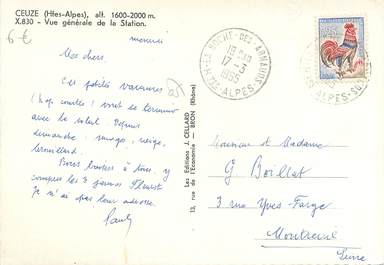 CEUZE (Htes-Alpes), alt. 1600-2000 m.
X.830 - Vue générale de la Station.
6 €
mercredi
Mes chers,
Ces petites vacances
(trop courtes) vont se terminer
avec le soleil. Depuis
dimanche : nuage, neige,
brouillard.
Bons baisers à tous, y
compris les
Je n'ai pas leur adresse.
Les Editions J. CELLARD
13, rue de l'Economie - BRON (Rhône)
LA ROCHE-DES-ARNAUDS
18H30
17-3
1965
HTES-ALPES
Monsieur et Madame
G Boillat
3 rue Yves-Farge
Montreuil
Seine